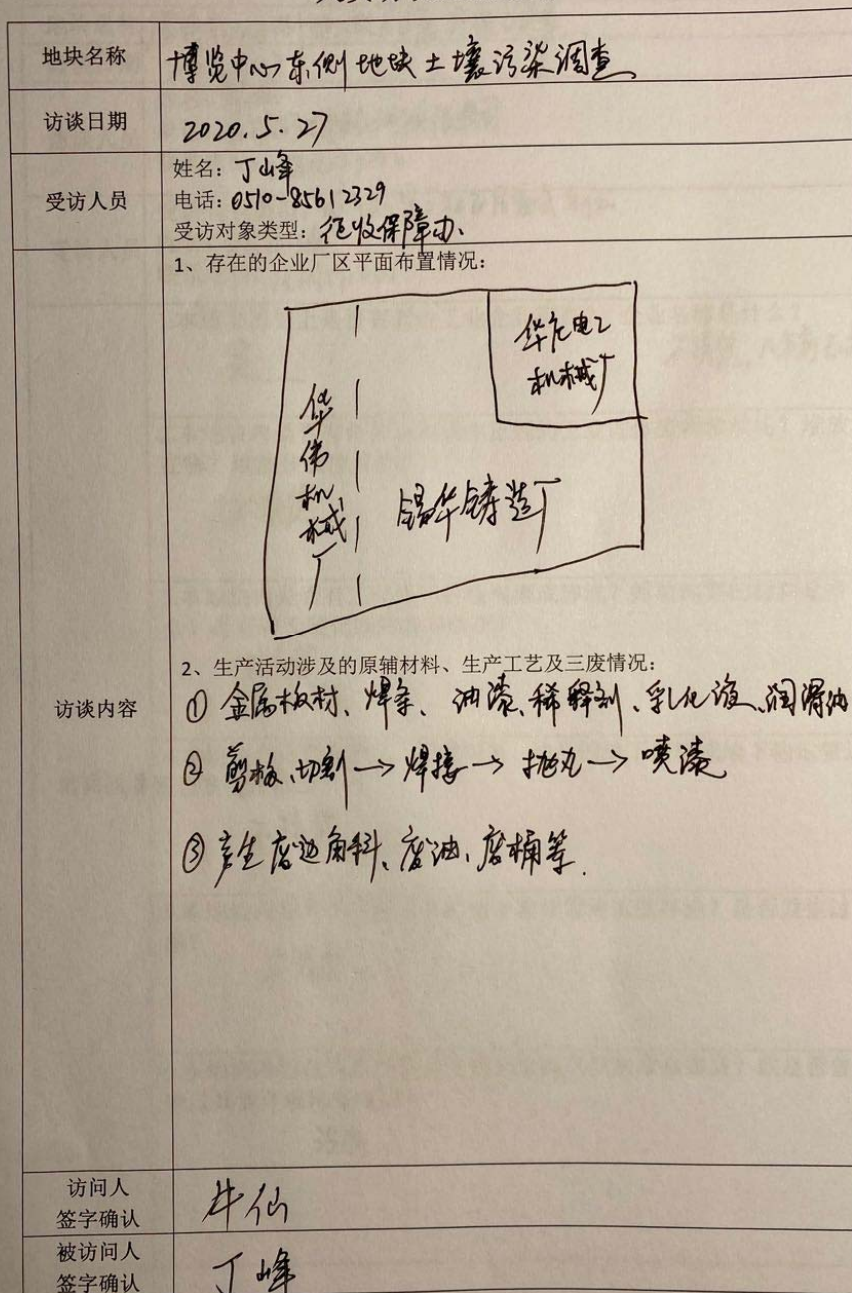 地块名称 博览中心东侧地块土壤污染调查
访谈日期 2020.5.27
受访人员
姓名：丁峰
电话：0510-85612329
受访对象类型：征收保障办
访谈内容
1、存在的企业厂区平面布置情况：
华伟机械厂
华龙电工
机械厂
锡华铸造厂
2、生产活动涉及的原辅材料、生产工艺及三废情况：
① 金属板材、焊条、油漆、稀释剂、乳化液、润滑油
② 剪板、切割→焊接→抛丸→喷漆
③ 产生废边角料、废油、废桶等.
访问人
签字确认
被访问人
签字确认 丁峰